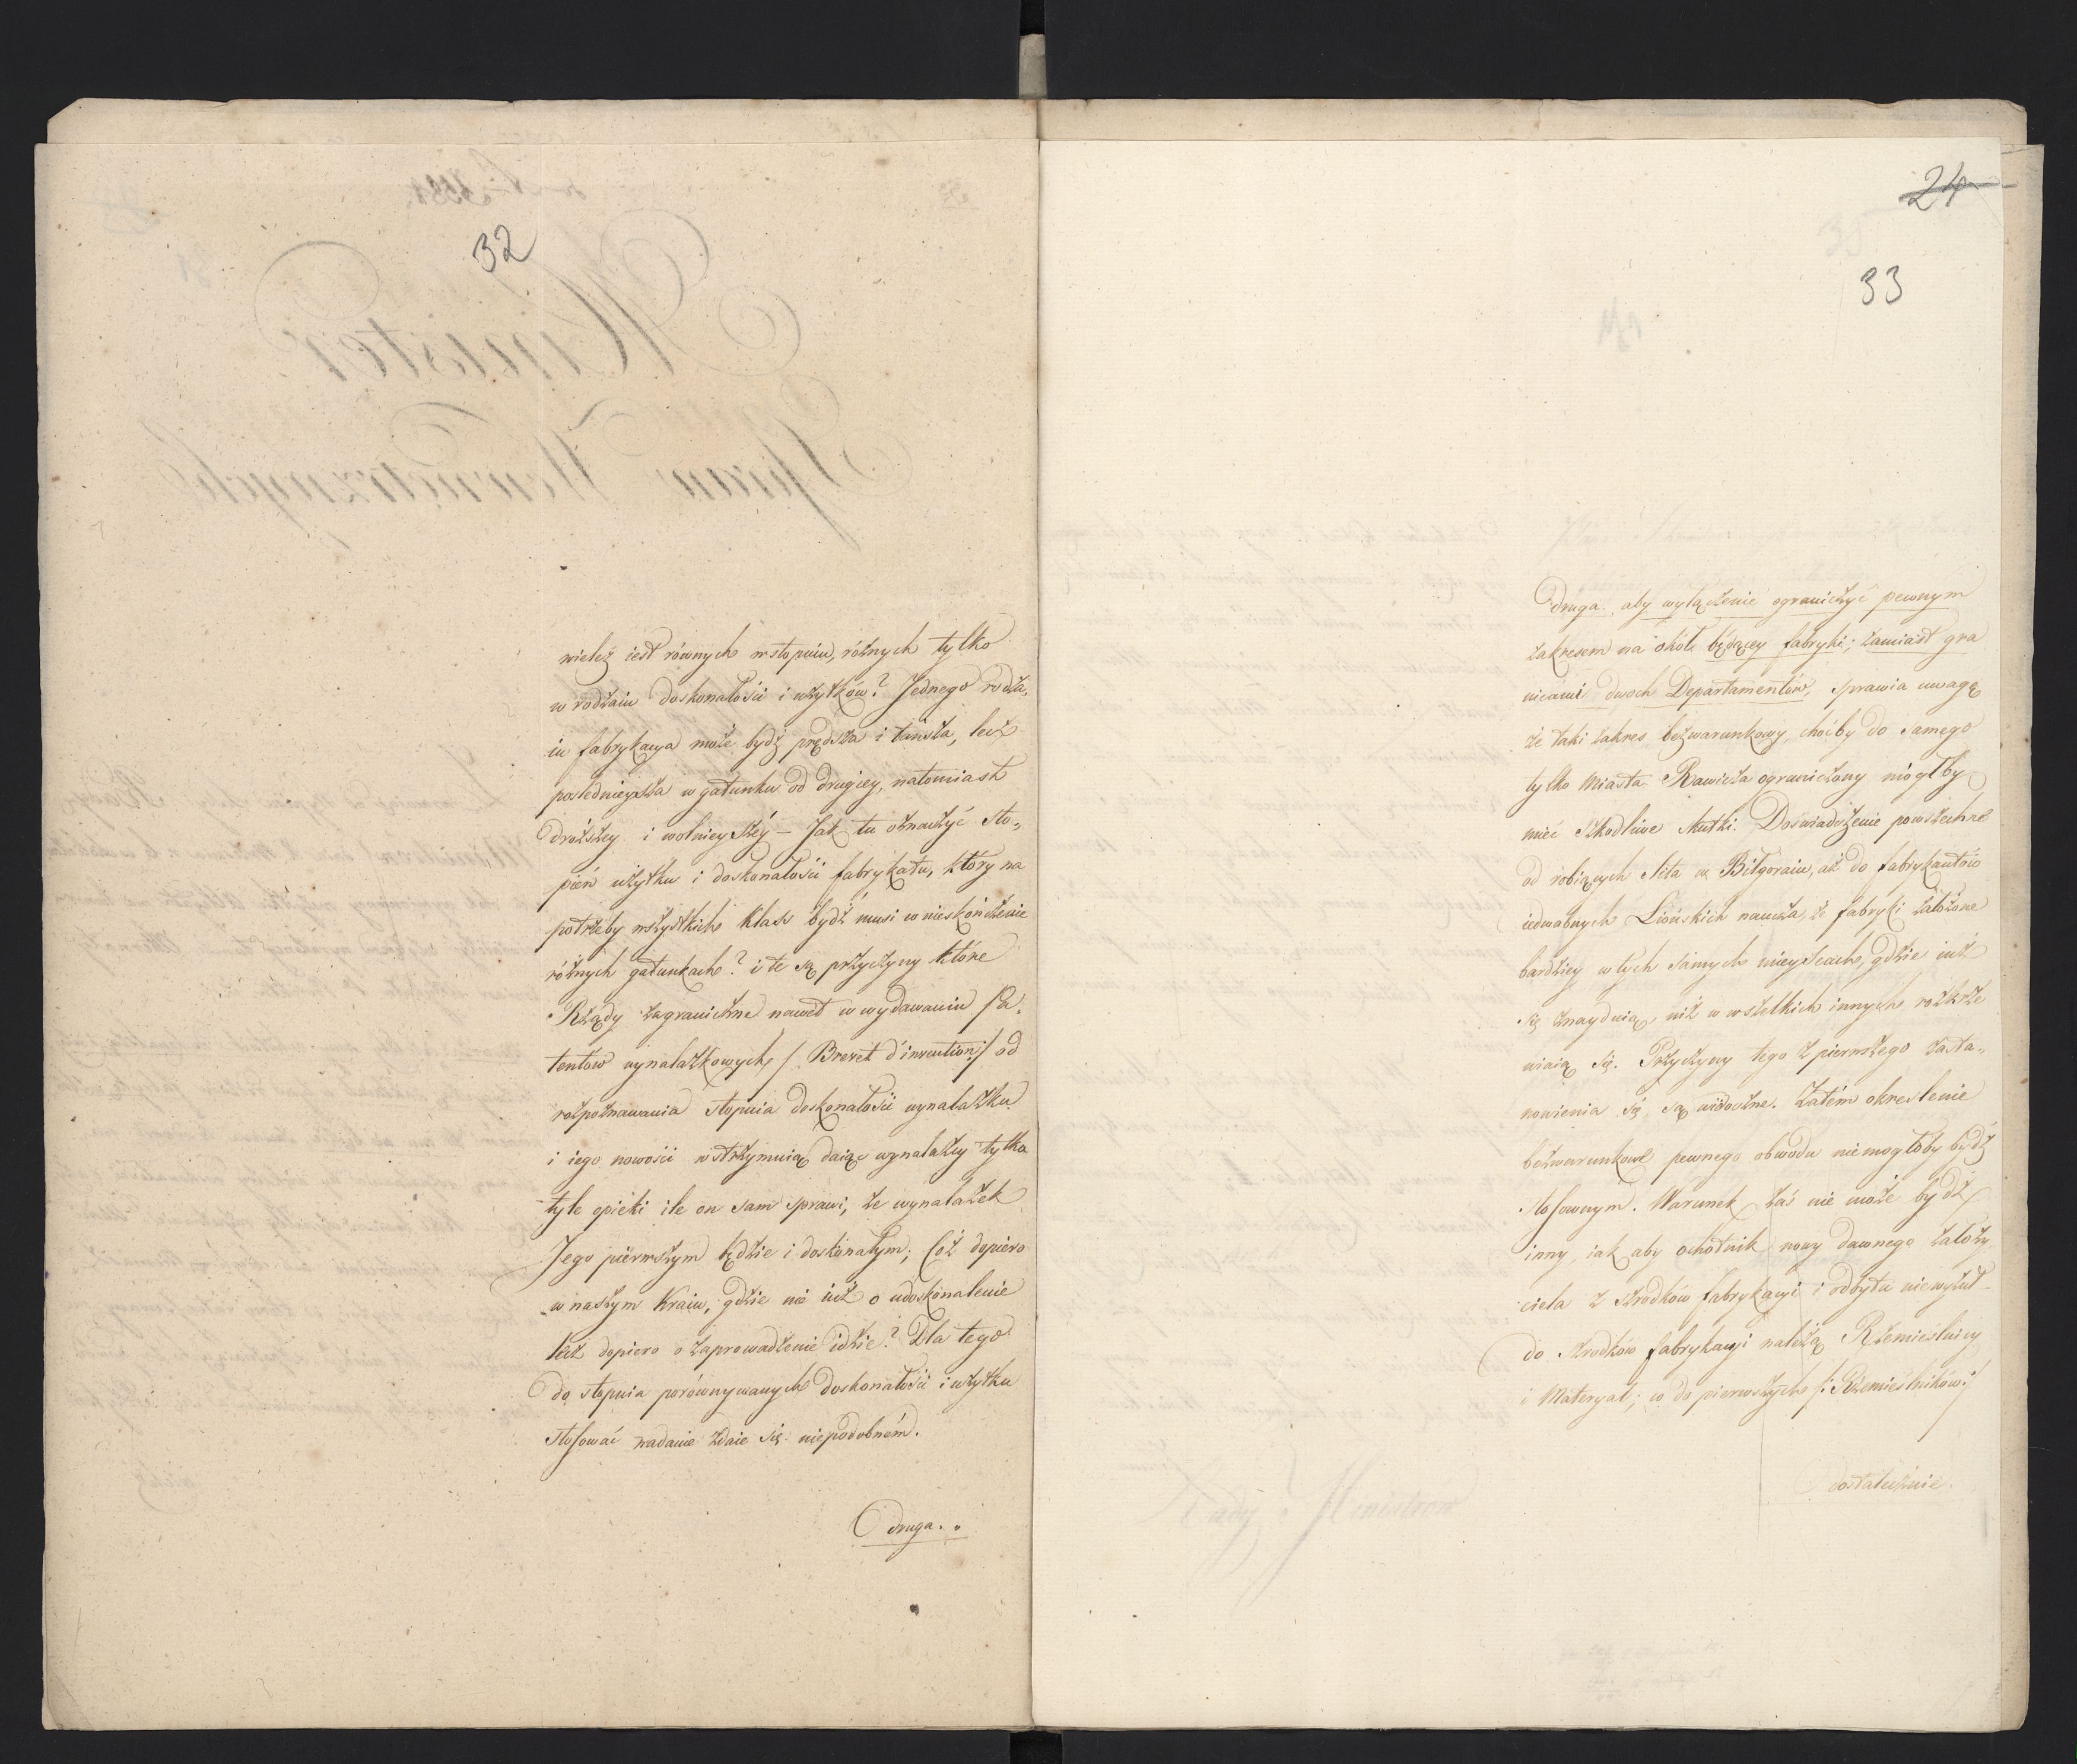 32
wieleż iest równych w stopniu, różnych tylko
w rodzaiu doskonałości i użytków? Jednego rodza,
iu fabrykacya może bydź prędsza i tańsza, lecz
poślednieysza w gatunku od drugiey, natomiast
droższey i wolnieyszéy – Jak tu oznaczyć sto„
pień użytku i doskonałości fabrykatu, który na
potrzeby wszystkich klass bydź musi w nieskończenie
różnych gatunkach? i te są przyczyny które
Rządy zagraniczne nawet w wydawaniu Pa,
tentów wynalazkowych /: Brevet d'invention :/ od
rozpoznawania stopnia doskonałości wynalazku
i iego nowości wstrzymuią daiąc wynalazcy tylko
tyle opieki ile on sam sprawi, że wynalazek
Jego piérwszym będzie i doskonałym; Cóż dopiero
w naszym Kraiu, gdzie nie iuż o udoskonalenie
lecz dopiero o zaprowadzenie idzie? Dla tego
do stopnia porównywanych doskonałości i użytku
stosować nadanie zdaie się niepodobném.
druga. „
24
33
Druga. aby wyłączenie ograniczyć pewnym
zakresem na około będącey fabryki; zamiast gra
nicami dwoch Departamentów, sprawia uwagę
że taki zakres bezwarunkowy, choćby do samego
tylko Miasta Rawicza ograniczony mógłby
mieć szkodliwe skutki. Doświadczenie powszechne
od robiących sita w Biłgoraiu, aż do fabrykantów
iedwabnych Liońskich naucza, że fabryki założone
bardziey w tych samych mieyscach, gdzie iuż
się znayduią, niż w wszelkich innych rozkrze
wiaią się. Przyczyny tego z pierwszego zasta„
nowienia się, są widoczne. Zatém okreslenie
bezwarunkowe pewnego obwodu niemogłoby bydź
stosownym. Warunek zaś nie może bydź
inny, iak aby ochotnik nowy dawnego założy
ciela z srzodków fabrykacyi i odbytu niewyzuł
do srzodków fabrykacyi należą Rzemieślnicy
i Materyał; co do pierwszych /: Rzemieslników :/
dostatecznie.